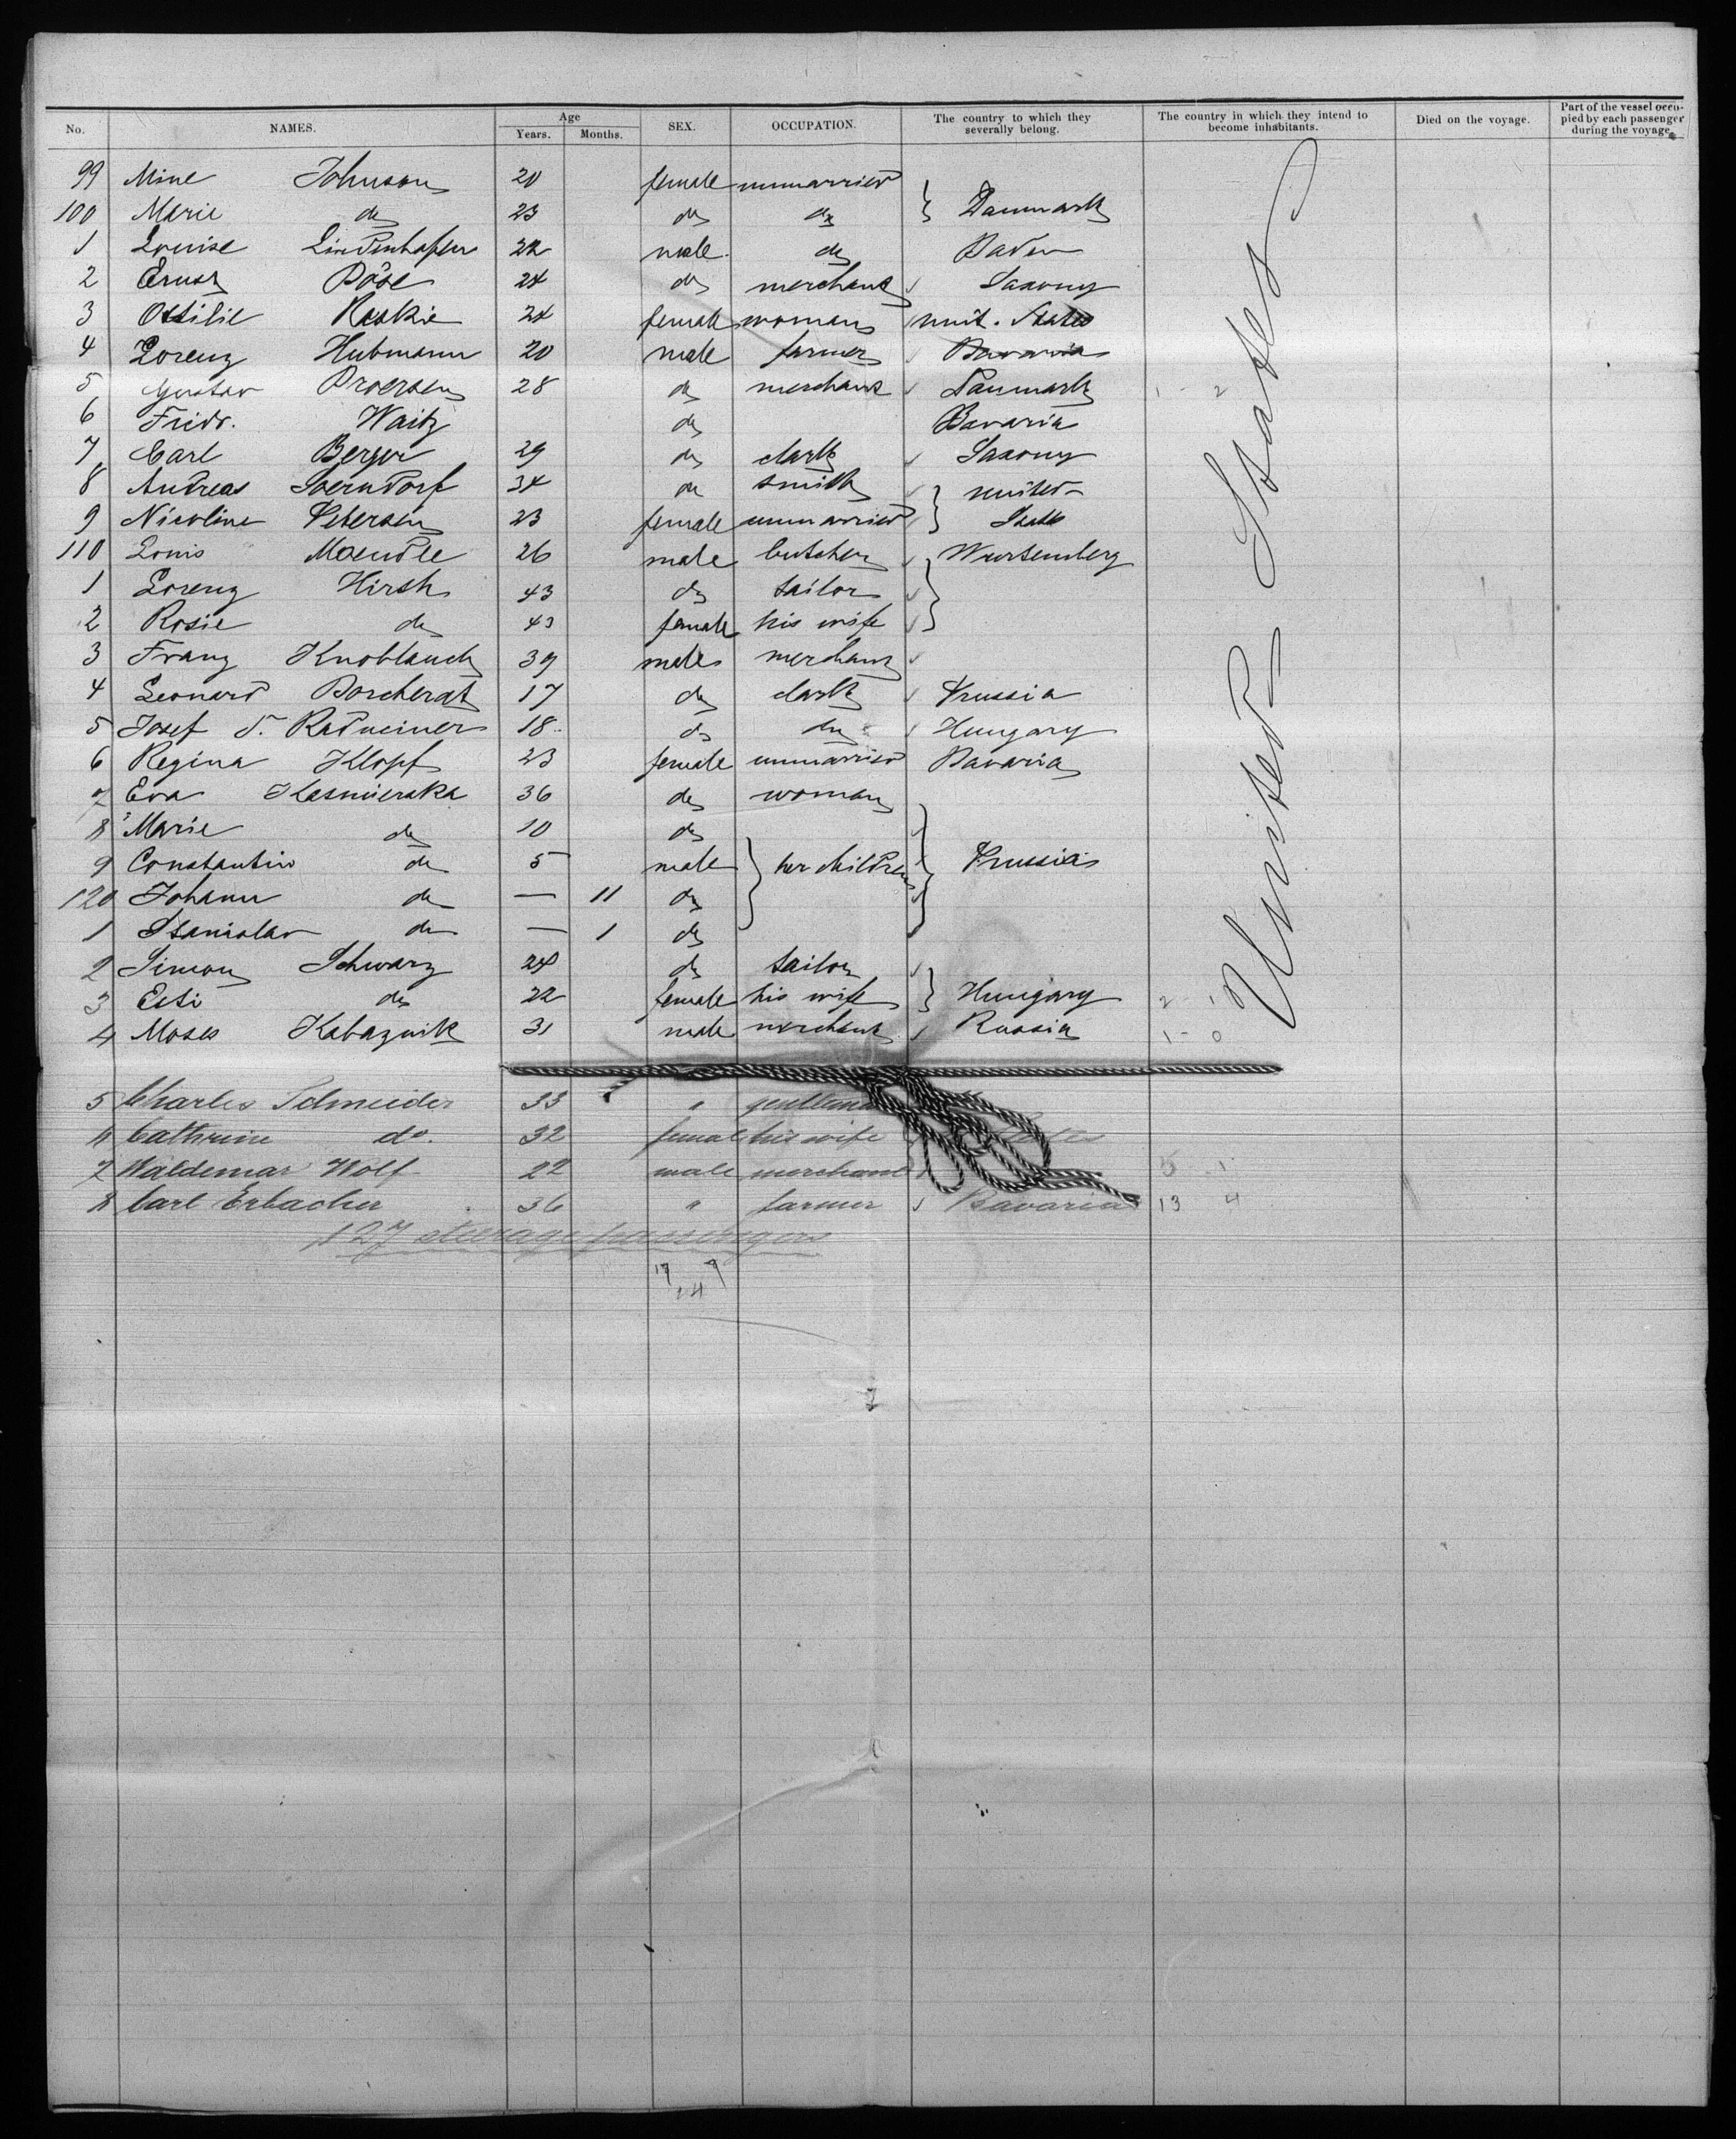 No. NAMES. Age Years. Months. SEX. OCCUPATION. The country to which they severally belong. The country in which they intend to become inhabitants. Died on the voyage. Part of the vessel occupied by each passenger during the voyage.
99 Mine Johnson 20 female unmarried
100 Marie do 23 do do } Danmark
1 Louise Lindenhofer 22 male do Baden
2 Ernst Döse 24 do merchant Saxony
3 Ottilie Raskie 24 female woman unit. States
4 Lorenz Hubmann 20 male farmer Bavaria
5 Gustav Broersen 28 do merchant Danmark 1 - 2
6 Fridr. Waitz do Bavaria
7 Carl Berger 29 do clark Saxony
8 Andreas Soerndorf 34 do smith } united
9 Nicoline Petersen 23 female unmarried States
110 Louis Maendle 26 male butcher Wurtemberg
1 Lorenz Hirsh 43 do tailor
2 Rosie do 43 female his wife
3 Franz Knoblauch 39 male merchant
4 Leonard Borcherat 17 do clark Prussia
5 Josef S. Radneiner 18 do do Hungary
6 Regina Klopf 23 female unmarried Bavaria
7 Eva Kasmieraka 36 do woman
8 Marie do 10 do
9 Constantin do 5 male her children Prussia
120 Johann do — 11 do
1 Stanislav do — 1 do
2 Simon Schwarz 24 do tailor
3 Esti do 22 female his wife } Hungary 2 - 1
4 Moses Kabaznik 31 male merchant Russia 1 - 0
United States
5 Charles Schneider 33 " gentleman
6 Cathrine do. 32 female his wife States
7 Waldemar Wolf 22 male merchant 5 1
8 Carl Erbacher 36 " farmer Bavaria 13 4
127 steerage passengers